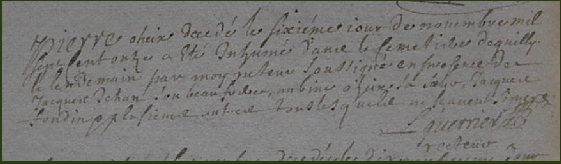 Pierre aheix decedé le sixiéme iour de novembre mil
sept cent onze a eté Inhumé dans le semetiére de quilly
le lendemain par moy recteur soussigné en presence de
Jacques Jehan son beau frere, aubine aheix sa Jacques
Bondin plusieurs autres tous lesquels ne scavent signer
recteur
decedé le dix